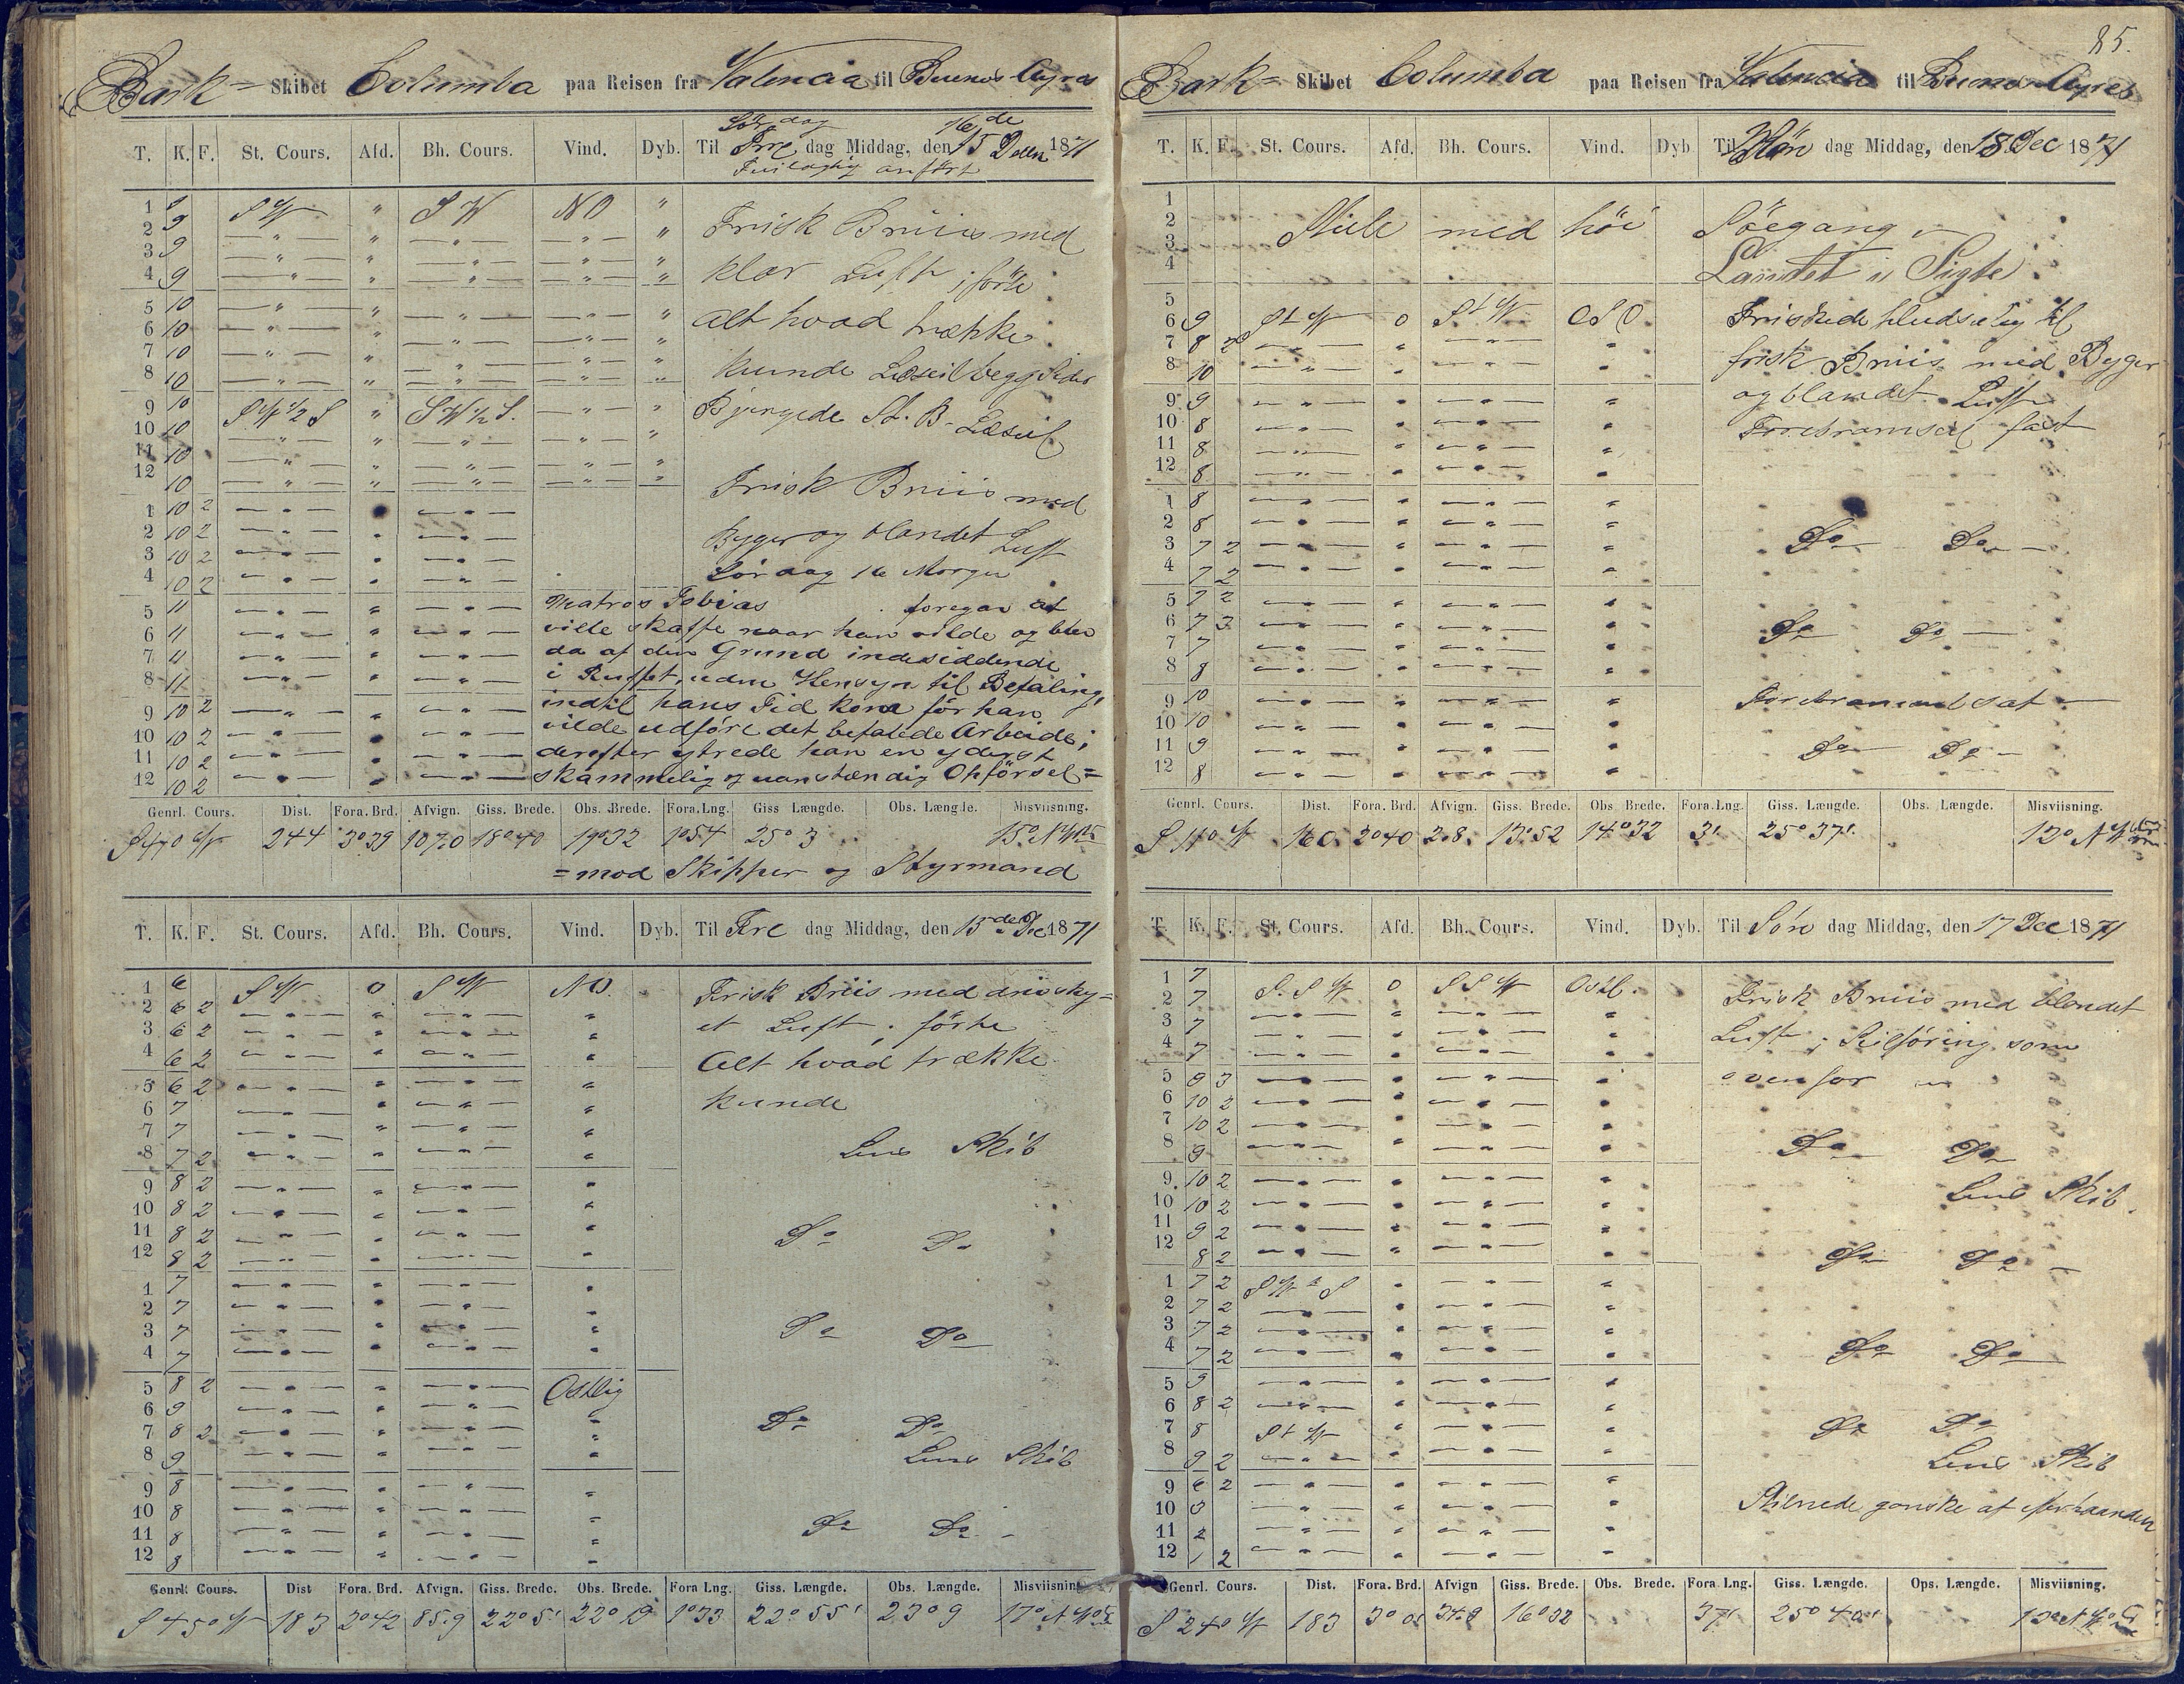 Bark- Skibet Columba paa Reisen fra Valencia til Buenos Ayres
T. K. F. St. Cours. Afd. Bh. Cours. Vind. Dyb. Til Fre dag Middag, den 15 Dec 1871
Lördag 16de
anført
1 S W " S W NO "
2 9
3 9
4 9
5 10
6 10
7 10
8 10
9 10 S W ½ S " S W ½ S.
10 10
11 10
12 10
1 10 2
2 10 2
3 10 2
4 10 2
5 11
6 11
7 11
8 11
9 10 2
10 10 2
11 10 2
12 10 2
Frisk Briis med
klar Luft; förte
alt hvad trække
kunde Læseil begg Sider
Bjergede St. B. Læseil
Frisk Briis med
Byger og blandet Luft
Lördag 16 Morgen
Matros Tobias foregav at
ville skaffe naar han vilde og blev
da af den Grund indesiddende
i Ruffet, uden Hensyn til Befaling,
indtil hans Tid kom før han
vilde udføre det befalede Arbeide;
derefter ytrede han en yderst
skammelig og uanstændig Opförsel=
Genrl. Cours. Dist. Fora. Brd. Afvign. Giss. Brede. Obs. Brede. Fora. Lng. Giss Længde. Obs. Længde. Misviisning.
S 47° W 244 3°39 107.0 18°40 19°32 1°54 25° 3 15° N W
=mod Skipper og Styrmand
T. K. F. St. Cours. Afd. Bh. Cours. Vind. Dyb. Til Fre dag Middag, den 15de Dec 1871
1 6 S W 0 S W NO.
2 6 2
3 6 2
4 6 2
5 6 2
6 7
7 7
8 7 2
9 8 2
10 8 2
11 8 2
12 8 2
1 7
2 7
3 7
4 7
5 8 2 Ostlig
6 9
7 8 2
8 9
9 8
10 8
11 8
12 8
Frisk Briis med drivsky=
et Luft; förte
Alt hvad trække
kunde
Lens Skib
Do Do
Do Do
Do Do
Lens Skib
Do Do
Genrl. Cours. Dist Fora. Brd. Afvign. Giss. Brede. Obs. Brede. Fora Lng. Giss. Længde. Obs. Længde. Misviisning
S 45° W 183 2°42 85.9 22° 5' 22° 19 1°33 22° 55' 23° 9 17° N W
85.
Bark- Skibet Columba paa Reisen fra Valencia til Buenos Ayres
T. K. F. St. Cours. Afd. Bh. Cours. Vind. Dyb Til Man dag Middag, den 18 Dec 1871
1
2
3
4
5
6 9 S t W 0 S t W OSO.
7 8 2
8 10
9 9
10 8
11 8
12 8
1 8
2 8
3 7 2
4 7 2
5 7 2
6 7 3
7 7
8 8
9 10
10 10
11 9
12 8
Stille med höi Söegang
Landet i Sigte
Friskede pludselig til
frisk Briis med Byger
og blandet Luft
Forebramseil fast
Do Do
Do Do
Forebramseil sat
Do Do
Genrl. Cours. Dist. Fora. Brd. Afvign. Giss. Brede. Obs. Brede. Fora. Lng. Giss. Længde. Obs. Længde. Misviisning.
S 11° W 160. 2°40 2.8. 13°52 14°32 3' 25° 37'. 12° N W
T. K. F. St. Cours. Afd. Bh. Cours. Vind. Dyb. Til Søn dag Middag, den 17 Dec 1871
1 7 S. S W 0 S S W Ostl.
2 7
3 7
4 7
5 9 3
6 10 2
7 10 2
8 9
9 10 2
10 10 2
11 9 2
12 8 2
1 7 2 S W t S
2 7 2
3 7 2
4 7 2
5 9
6 8 2
7 8 S t W
8 9 2
9 6 2
10 3
11 2
12 1 2
Frisk Briis med blandet
Luft; Seilføring som
ovenfor
Do Do
Lens Skib.
Do Do
Do Do
Do Do
Lens Skib
Stilnede ganske af efterhaanden
Genrl. Cours. Dist. Fora. Brd. Afvign Giss. Brede. Obs. Brede. Fora Lng. Giss. Længde. Ops. Længde. Misviisning.
S 24° W 183 3° 0 16°32 37' 25° 40'